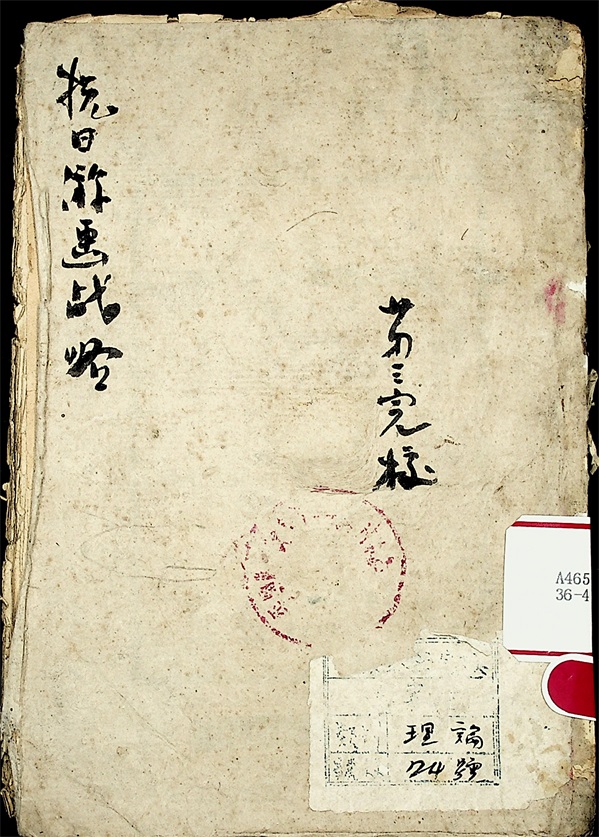 抗日游击战略
第三完校
A465
36-4
理論
74號